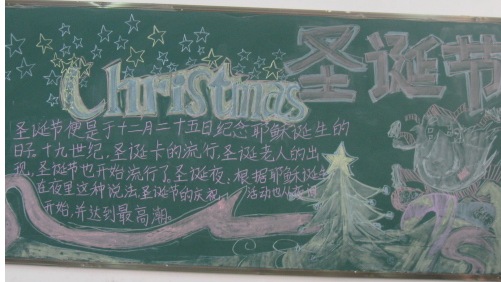 Christmas 圣诞节
圣诞节便是于十二月二十五日纪念耶稣诞生的
日子。十九世纪,圣诞卡的流行,圣诞老人的出
现,圣诞节也开始流行了圣诞夜,根据耶稣诞生
在夜里这种说法,圣诞节的庆祝活动也从夜
开始,并达到最高潮。